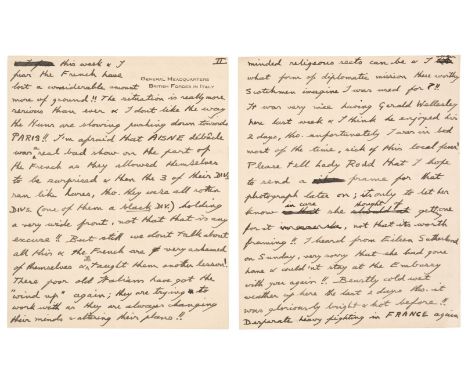 this week & I
II
fear the French have
GENERAL HEADQUARTERS
BRITISH FORCES IN ITALY
lost a considerable amount
more of ground!! The situation is really more
serious than ever & I don't like the way
the Huns are slowly pushing down towards
PARIS!! I'm afraid that AISNE débâcle
was a real bad show on the part of
the French as they allowed themselves
to be surprised & then the 3 of their DIVS
ran like hares, tho. they were all rotten
DIVS (one of them a black DIV) holding
a very wide front, not that that is any
excuse!! But still we don't talk about
all this & the French are very ashamed
of themselves & taught them another lesson!
These poor old Italians have got the
"wind up" again; they are trying to
work with as they are always changing
their minds & altering their plans!!
minded religeous sects can be & I
what form of diplomatic mission these worthy
Scotchmen imagine I was used for?!!
It was very nice having Gerald Wellesley
here last week & I think he enjoyed his
2 days, tho. unfortunately I was in bed
most of the time, sick of this local fever!
Please tell Lady Rodd that I hope
to send a frame for that
photograph later on; its only to let her
know in case she thought of getting one
for it, not that its worth
framing!! I heard from Eileen Sutherland
on Sunday, very sorry that she had gone
home & couldn't stay at the Embassy
with you again!! Beastly cold wet
weather up here the last 2 days tho. it
was gloriously bright & hot before!!
Desperate heavy fighting in FRANCE again